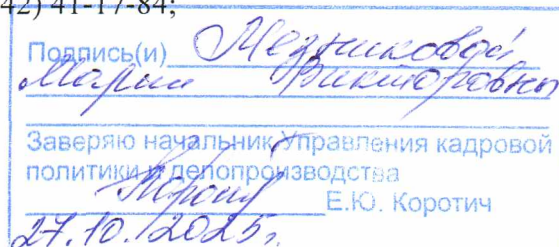 42) 41-17-84;
Подпись(и) Мезниковой
Марии Викторовны
Заверяю начальник Управления кадровой
политики и делопроизводства
Е.Ю. Коротич
27.10.2025г.